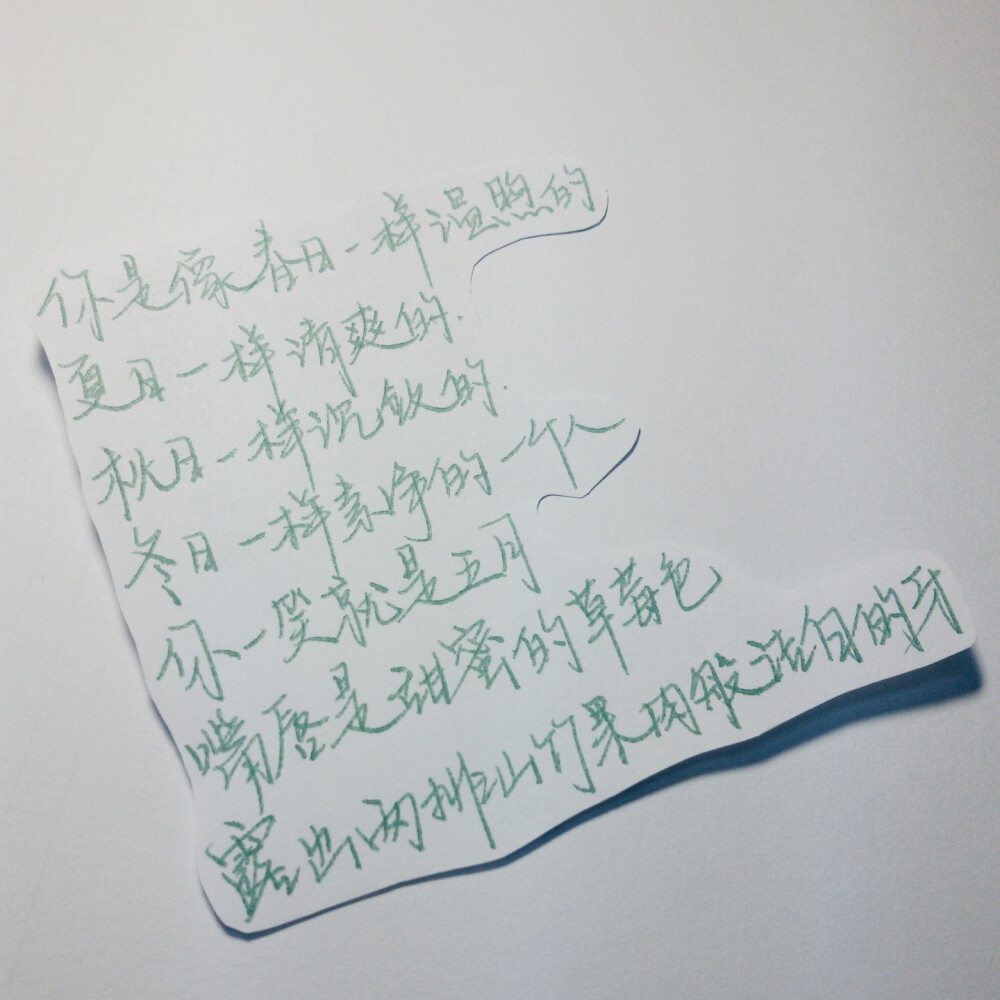 你是像春日一样温煦的
夏日一样清爽的.
秋日一样沉敛的.
冬日一样素净的一个人
你一笑就是五月
嘴唇是甜蜜的草莓色
露出两排山竹果肉般洁白的牙